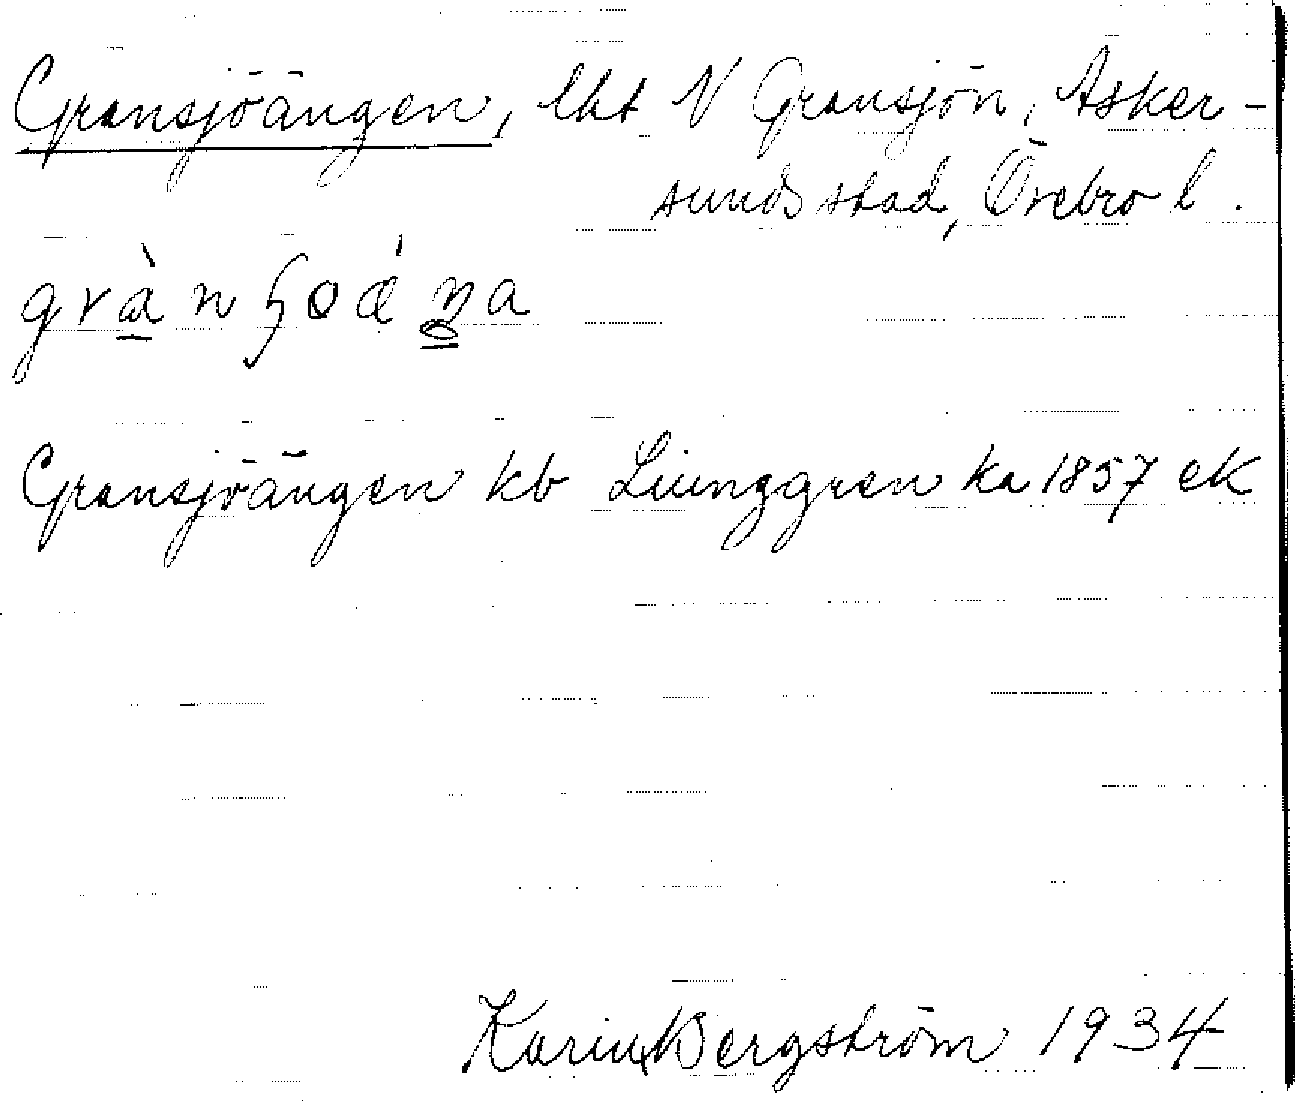 Gransjöängen, lht N Gransjön, Asker-
sunds stad, Örebro l.
grànʂoǽŋa
Gransjöängen kb Liunggren ka 1857 eK
Karin Bergström 1934